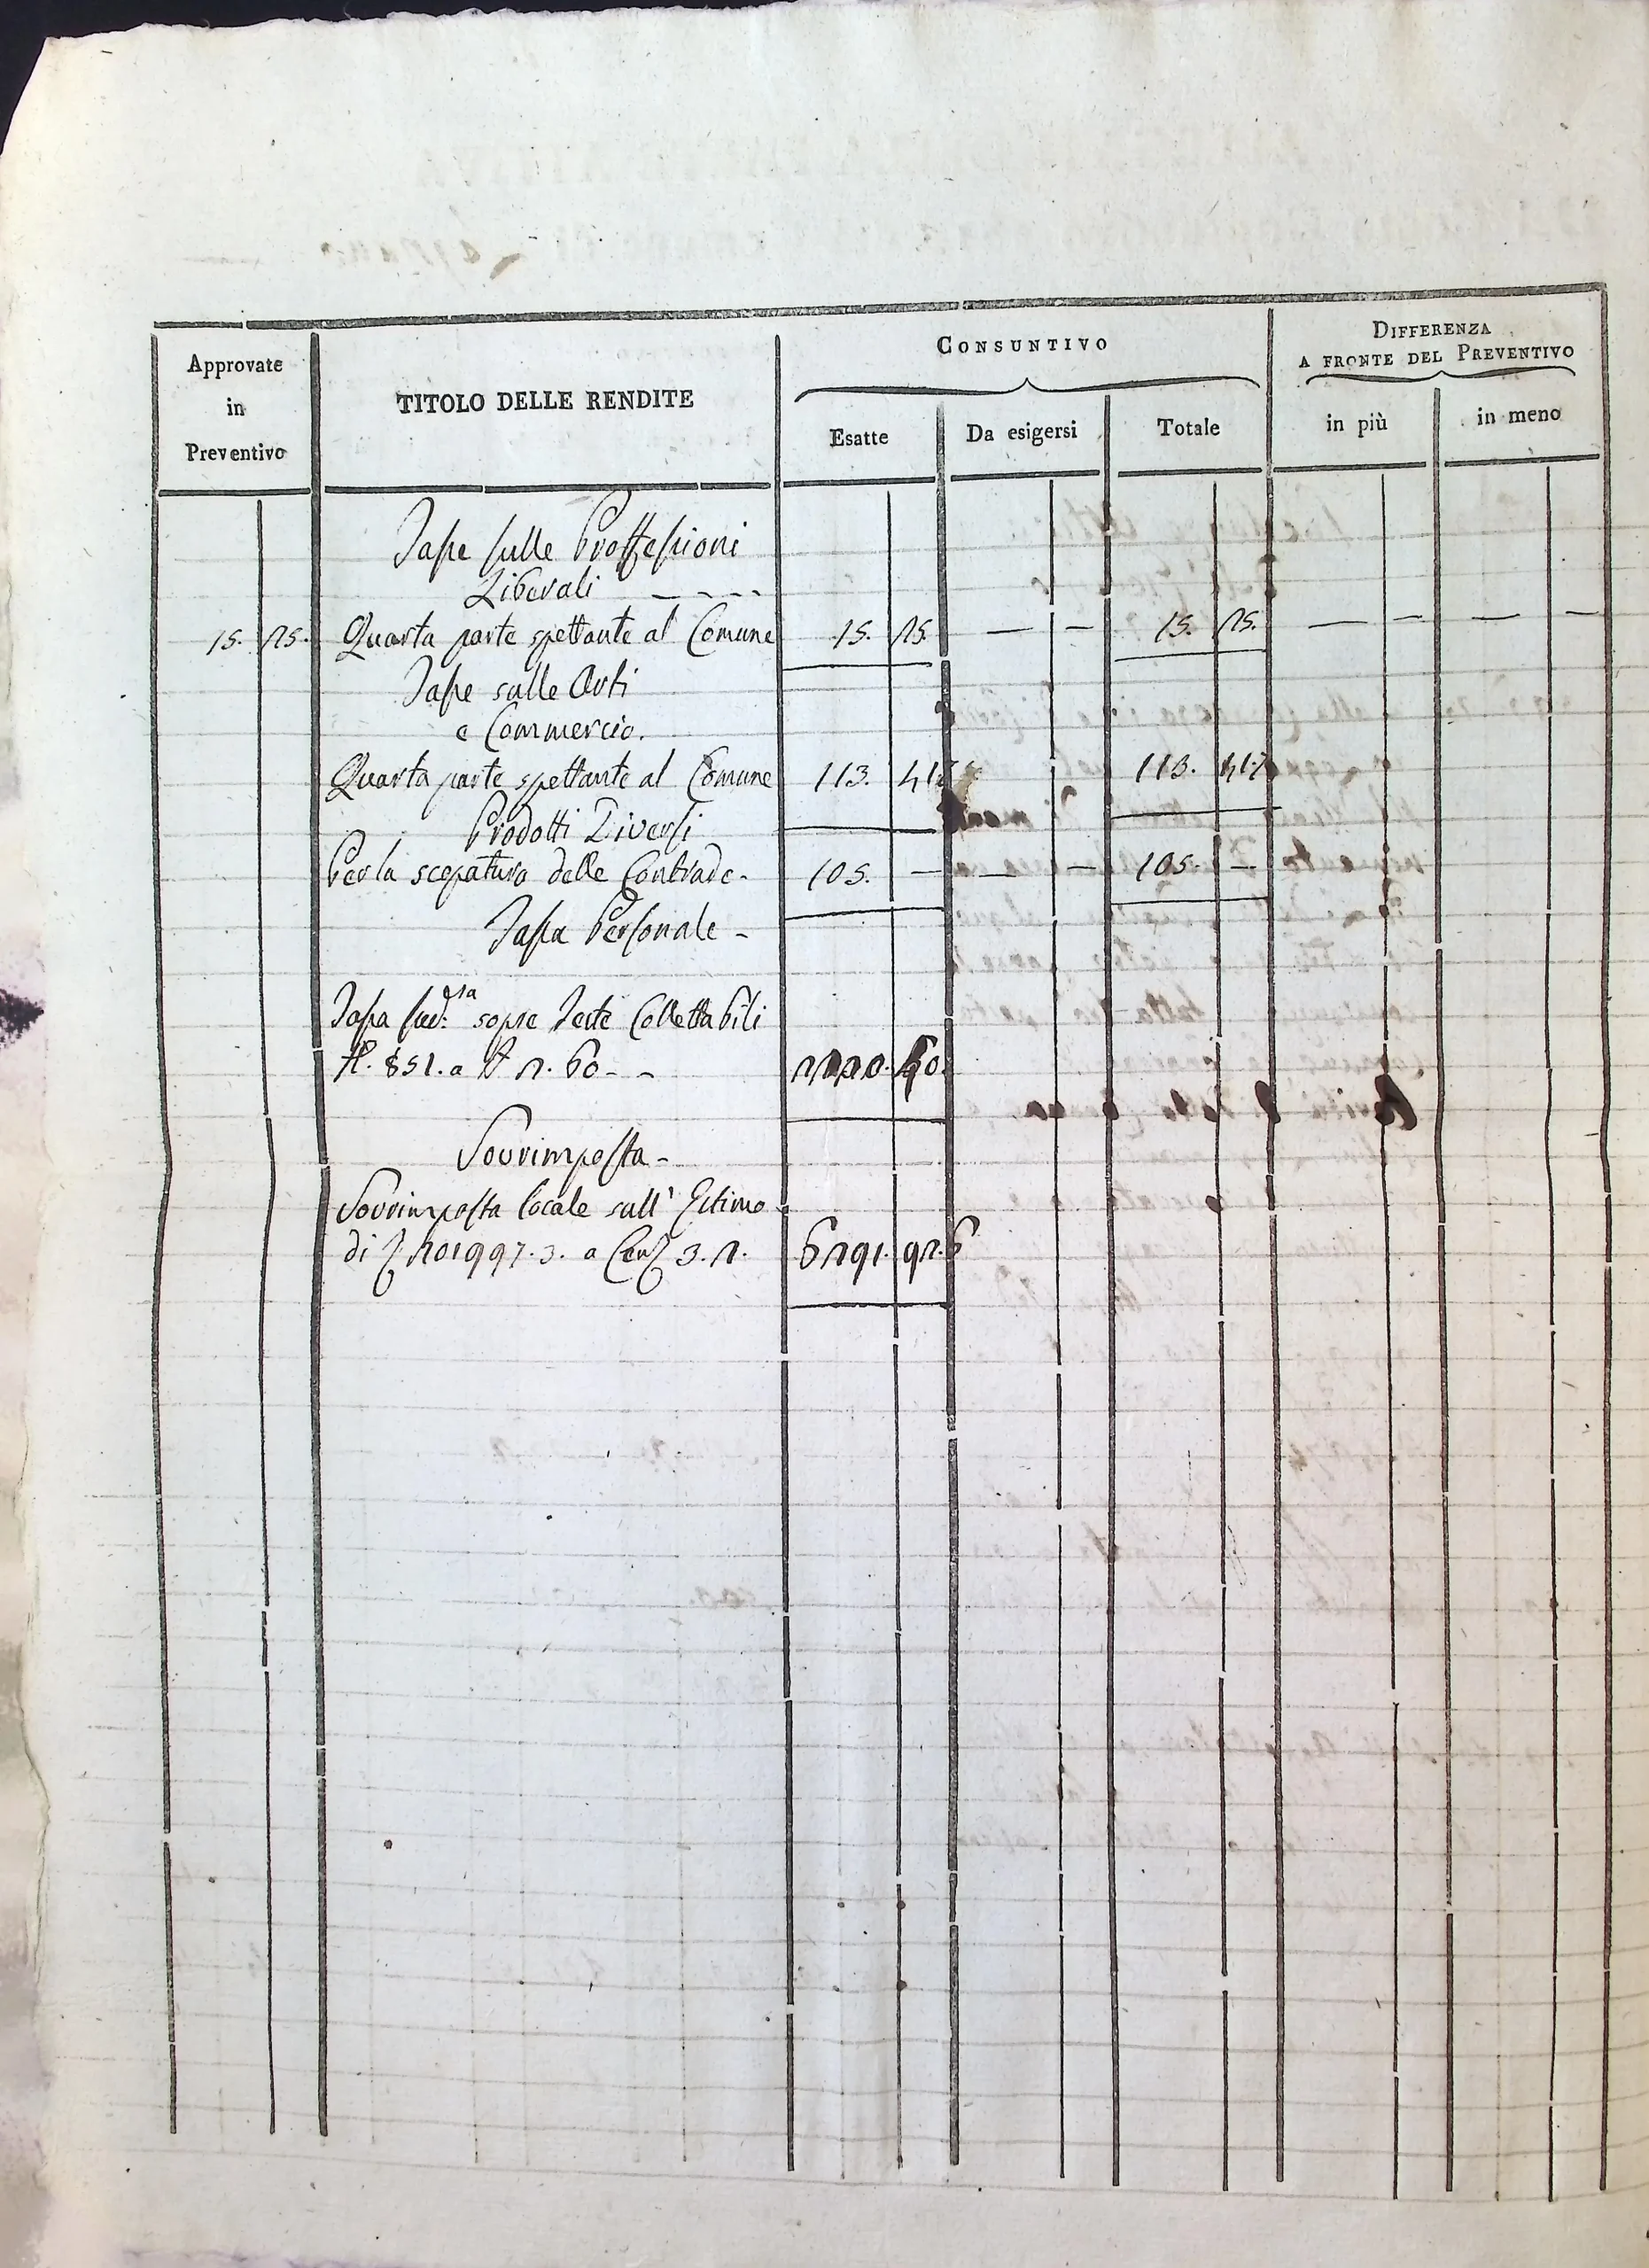 Approvate
in
Preventivo
TITOLO DELLE RENDITE
CONSUNTIVO
DIFFERENZA
A FRONTE DEL PREVENTIVO
Esatte
Da esigersi
Totale
in più
in meno
Tasse sulle Proffessioni
Liberali - - - -
15. 25. Quarta parte spettante al Comune 15. 25. — — 15. 25. — — — —
Tasse sulle Arti
e Commercio.
Quarta parte spettante al Comune 113. 113. 41.7
Prodotti Diversi
Per la scopatura delle Contrade - 105. — — — 105. —
Tassa Personale -
Tassa sud.sa sopra Teste Collettabili
N. 851. a £ 2. 60 - - 60.
Sovrimposta -
Sovrimposta locale sull' Estimo
di 201997. 3. a Cent 3. 2. 6291. 92. 6